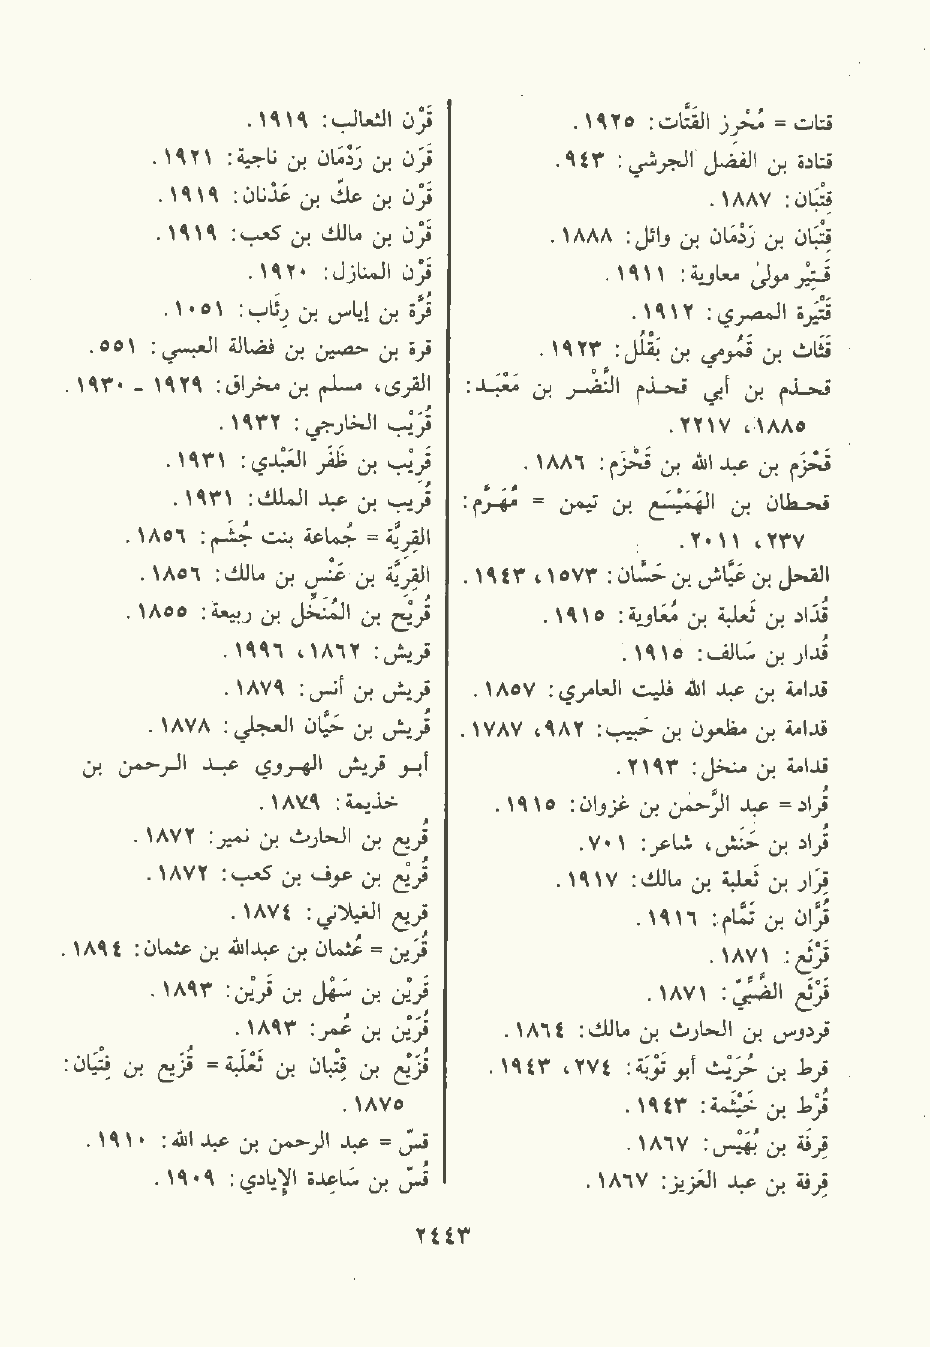 قتات = مُحْرِز القَتَّات: ١٩٢٥.
قتادة بن الفضل الجرشي: ٩٤٣.
قِتْبَان: ١٨٨٧.
قِتْبَان بن رَدْمَان بن وائل: ١٨٨٨.
قَتِيْر مولىٰ معاوية: ١٩١١.
قُتَيْرة المصري: ١٩١٢.
قَثَاث بن قَمُومي بن بَقْلُل: ١٩٢٣.
قحذم بن أبي قحذم النَّضْر بن مَعْبَد:
١٨٨٥، ٢٢١٧.
قَحْزَم بن عبد الله بن قَحْزَم: ١٨٨٦.
قحطان بن الهَمَيْسَع بن تيمن = مُهَرَّم:
٢٣٧، ٢٠١١.
القحل بن عَيَّاش بن حَسَّان: ١٥٧٣، ١٩٤٣.
قُدَاد بن ثَعلبة بن مُعَاوية: ١٩١٥.
قُدار بن سَالف: ١٩١٥.
قدامة بن عبد الله فليت العامري: ١٨٥٧.
قدامة بن مظعون بن حَبيب: ٩٨٢، ١٧٨٧.
قدامة بن منخل: ٢١٩٣.
قُراد = عبد الرَّحمٰن بن غزوان: ١٩١٥.
قُراد بن حَنَش، شاعر: ٧٠١.
قِرَار بن ثَعلبة بن مالك: ١٩١٧.
قُرَّان بن تَمَّام: ١٩١٦.
قَرْثَع: ١٨٧١.
قَرْثَع الضَّبِّيّ: ١٨٧١.
قردوس بن الحارث بن مالك: ١٨٦٤.
قرط بن حُرَيْث أبو تَوْبَة: ٢٧٤، ١٩٤٣.
قُرْط بن خَيْثَمة: ١٩٤٣.
قِرفَة بن بُهَيْس: ١٨٦٧.
قِرفة بن عبد العَزيز: ١٨٦٧.
قَرْن الثعالب: ١٩١٩.
قَرَن بن رَدْمَان بن ناجية: ١٩٢١.
قَرْن بن عكّ بن عَدْنان: ١٩١٩.
قَرْن بن مالك بن كعب: ١٩١٩.
قَرْن المنازل: ١٩٢٠.
قُرَّة بن إياس بن رِئَاب: ١٠٥١.
قرة بن حصين بن فضالة العبسي: ٥٥١.
القرى، مسلم بن مخراق: ١٩٢٩ - ١٩٣٠.
قُرَيْب الخارجي: ١٩٣٢.
قَرِيْب بن ظَفَر العَبْدي: ١٩٣١.
قُريب بن عبد الملك: ١٩٣١.
القِرِيَّة = جُماعة بنت جُشَم: ١٨٥٦.
القِرِيَّة بن عَنْس بن مالك: ١٨٥٦.
قُرَيْح بن المُنَخَّل بن ربيعة: ١٨٥٥.
قريش: ١٨٦٢، ١٩٩٦.
قريش بن أنس: ١٨٧٩.
قُريش بن حَيَّان العجلي: ١٨٧٨.
أبو قريش الهروي عبد الرحمن بن
خذيمة: ١٨٧٩.
قُريع بن الحارث بن نمير: ١٨٧٢.
قُرَيْع بن عوف بن كعب: ١٨٧٢.
قريع الغيلاني: ١٨٧٤.
قُرَين = عُثمان بن عبدالله بن عثمان: ١٨٩٤.
قَرِيْن بن سَهْل بن قَرِيْن: ١٨٩٣.
قُرَيْن بن عُمر: ١٨٩٣.
قُزَيْع بن قِتْبان بن ثَعْلَبة = قُزَيع بن فِتْيَان:
١٨٧٥.
قسّ = عبد الرحمن بن عبد الله: ١٩١٠.
قُسّ بن سَاعِدة الإيادي: ١٩٠٩.
٢٤٤٣